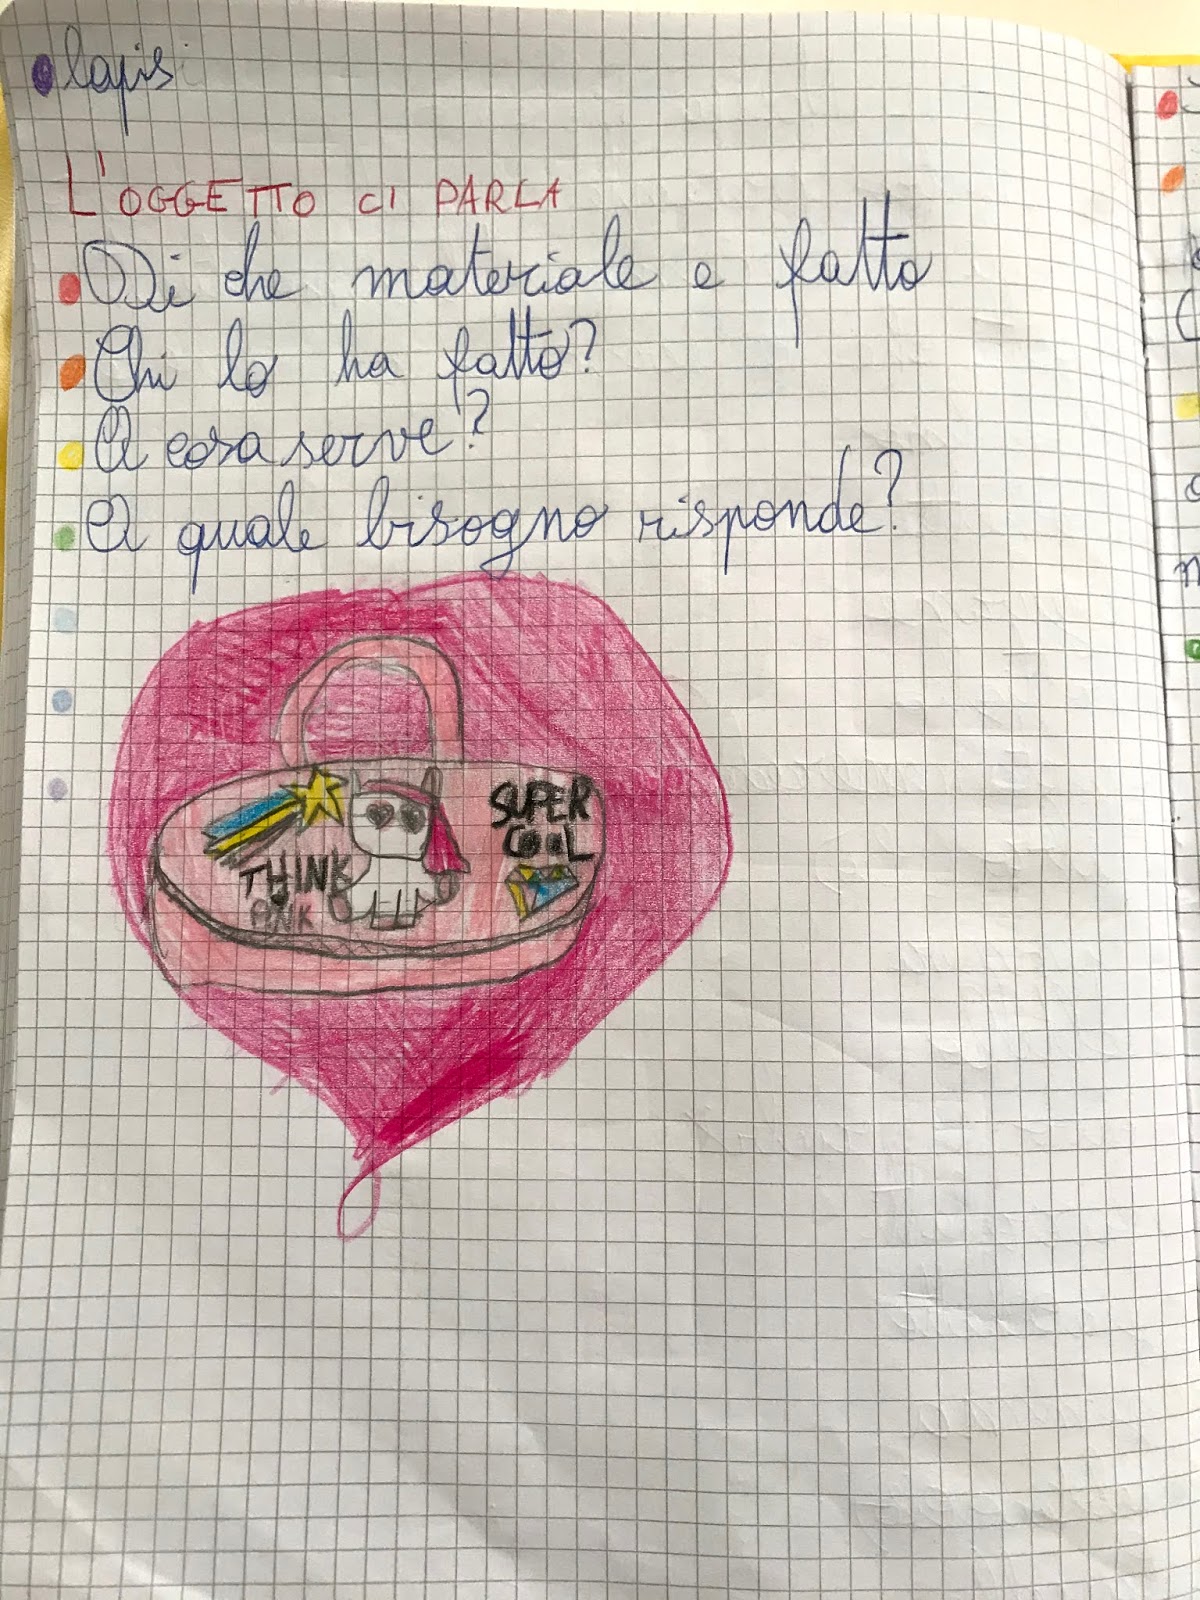 lapis
L'OGGETTO CI PARLA
Di che materiale e fatto
Chi lo ha fatto?
A cosa serve?
A quale bisogno risponde?
SUPER
COOL
THINK
PINK